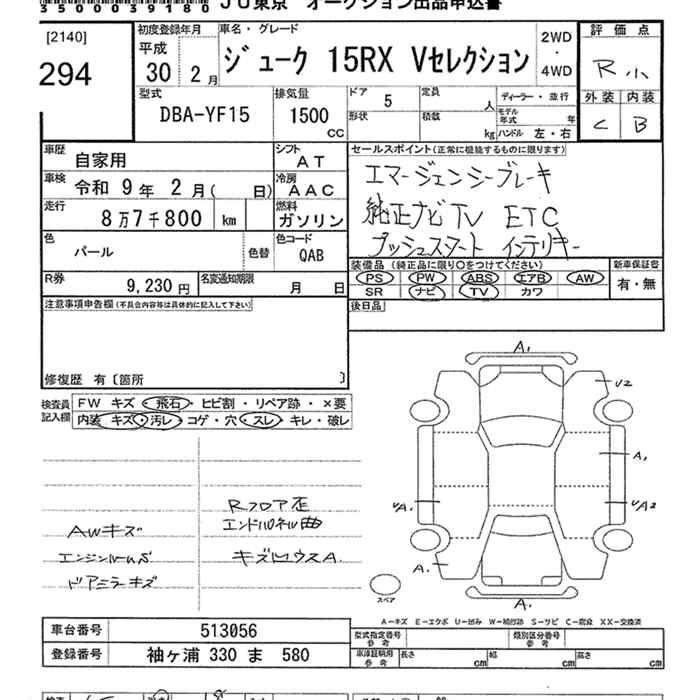 35000039180 JU東京 オークション出品申込書
[2140]
294
初度登録年月
平成
30 年 2 月
車名・グレード
ジューク 15RX Vセレクション
2WD
・
4WD
評価点
R 小
外装 内装
C B
型式
DBA-YF15
排気量
1500
CC
ドア 5
形状
定員 人
積載 kg
ディーラー・並行
モデル年式 年
ハンドル 左・右
車歴 自家用
シフト AT
セールスポイント(正常に機能するものに限ります)
エマージェンシーブレーキ
純正ナビTV ETC
プッシュスタート インテリキー
車検 令和 9 年 2 月( 日)
冷房 AAC
走行 8万7千800 km
燃料 ガソリン
色 パール 色替
色コード QAB
装備品(純正品に限り○をつけてください)
PS PW ABS エアB AW
SR ナビ TV カワ
新車保証書
有・無
R券 9,230 円
名変通知期限 月 日
後日品
注意事項申告欄(不具合内容等は具体的に記入して下さい)
修復歴 有〔箇所 〕
検査員記入欄
FW キズ・飛石・ヒビ割・リペア跡・×要
内装 キズ・汚レ・コゲ・穴・スレ・キレ・破レ
Rフロア歪
エンドパネル曲
AWキズ
エンジンルームS
キズ凹ウスA.
ドアミラキズ
A.
U2
A.
UA.
UA2
A.
A.
スペア
A-キズ E-エクボ U-凹み W-補修跡 S-サビ C-腐食 XX-交換済
車台番号 513056
登録番号 袖ヶ浦 330 ま 580
型式指定番号 参考
類別区分番号 参考
車庫証明用 参考
長さ cm
幅 cm
高さ cm